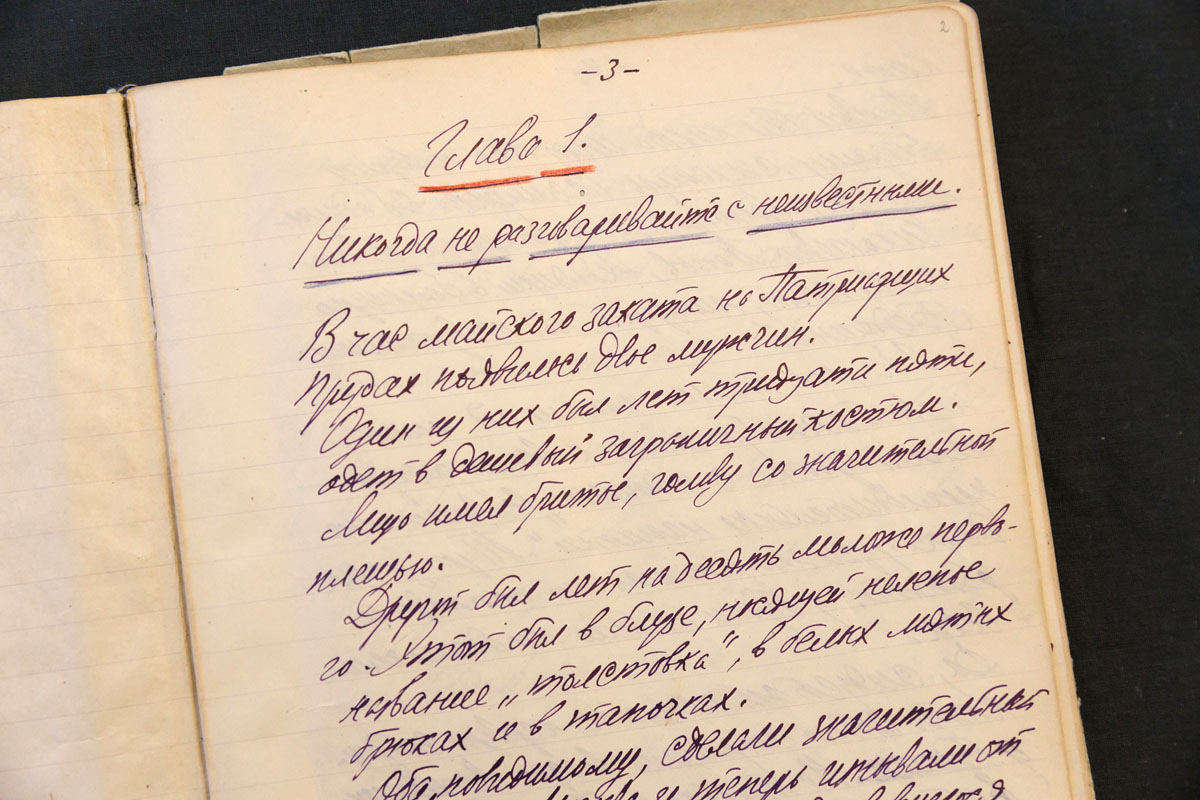 2
-3-
Глава 1.
Никогда не разговаривайте с неизвестными.
В час майского заката на Патриарших
Прудах появились двое мужчин.
Один из них был лет тридцати пяти,
одет в дешевый заграничный костюм.
Лицо имел бритое, голову со значительной
плешью.
Другой был лет на десять моложе перво-
го. Этот был в блузе, носящей нелепое
название „толстовка“, в белых мятых
брюках и в тапочках.
Оба, повидимому, сделали значительный
и теперь изнывали от